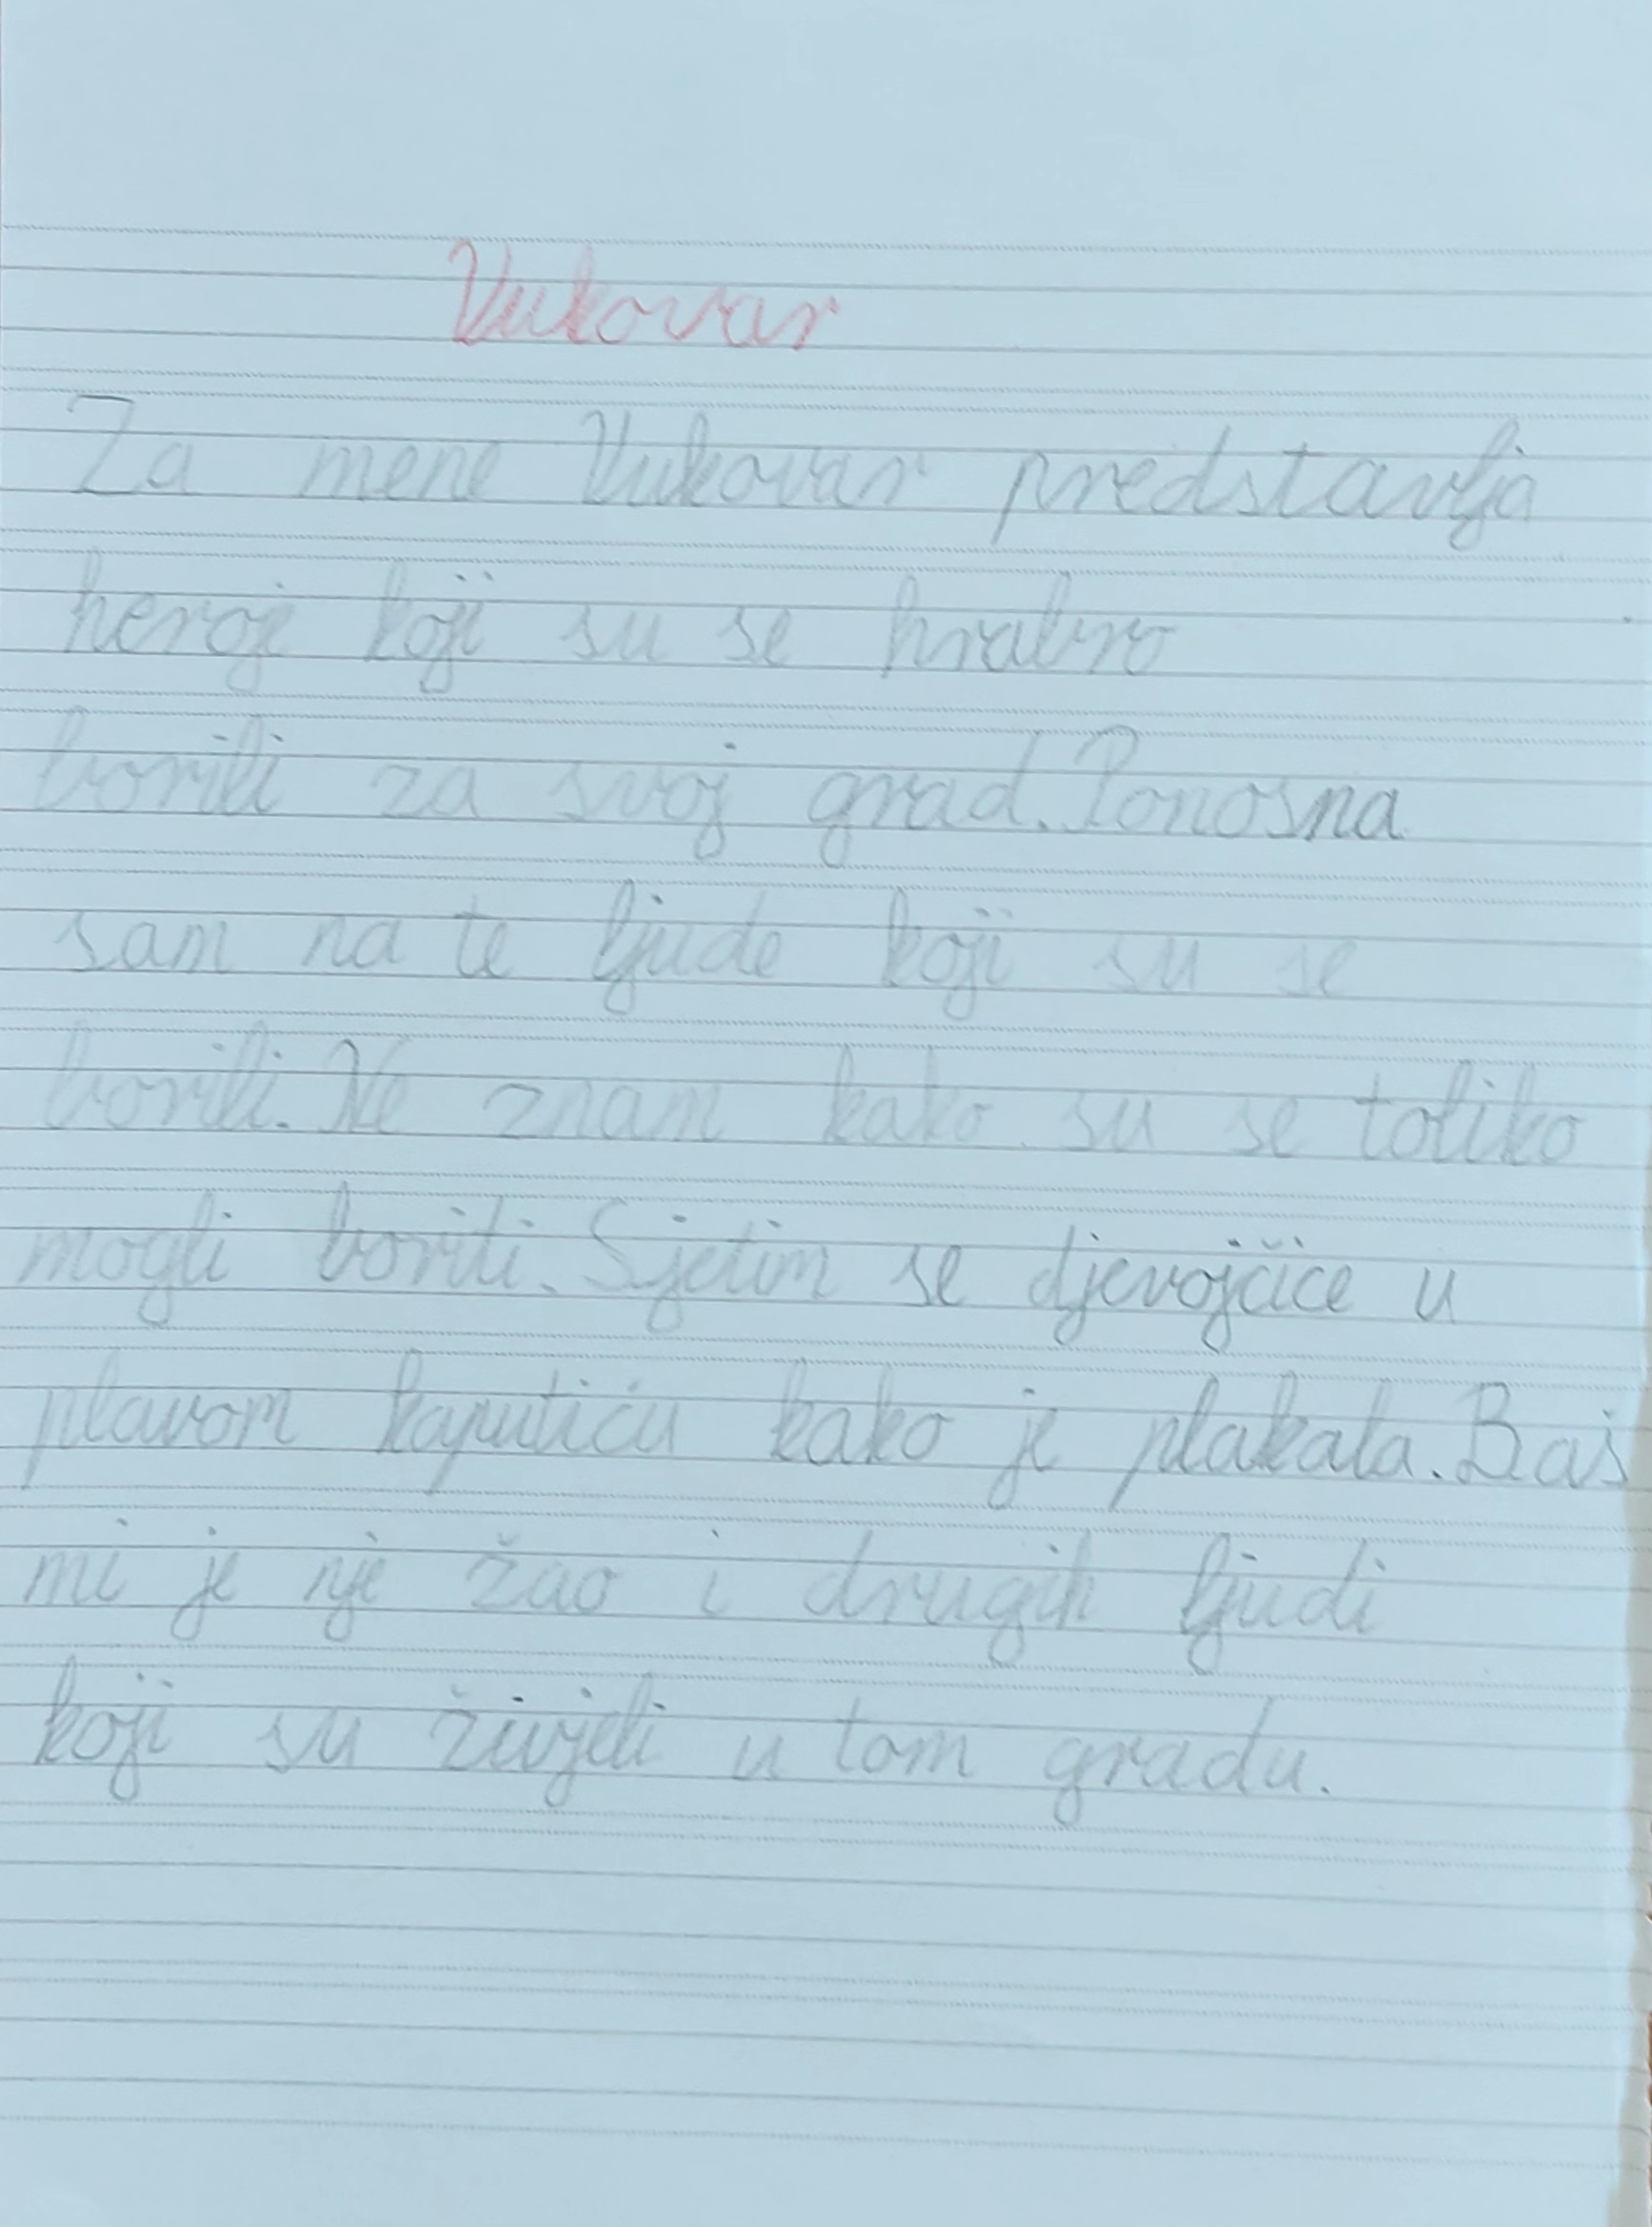 Vukovar
Za mene Vukovar predstavlja
heroji koji su se hrabro
borili za svoj grad. Ponosna
sam na te ljude koji su se
borili. Ne znam kako su se toliko
mogli boriti. Sjetim se djevojčice u
plavom kaputiću kako je plakala. Baš
mi je nje žao i drugih ljudi
koji su živjeli u tom gradu.